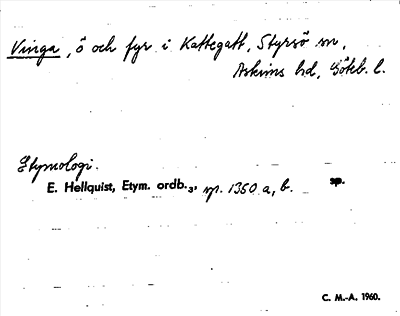 Vinga, ö och fyr i Kattegatt, Styrsö sn,
Askims hd, Göteb. l.
Etymologi.
E. Hellquist, Etym. ordb.3, sp. 1350 a, b. sp.
C. M.-A. 1960.